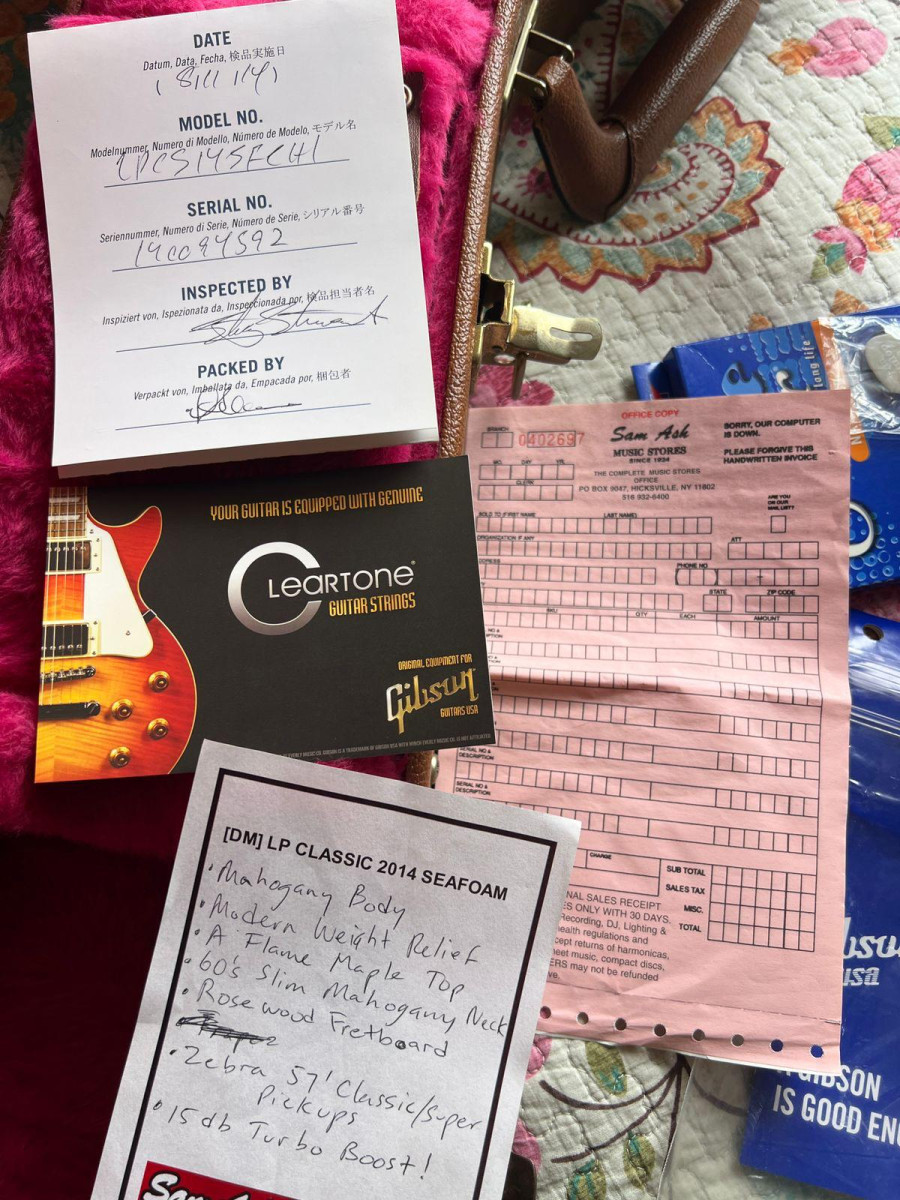 DATE
Datum, Data, Fecha, 検品実施日
MODEL NO.
Modelnummer, Numero di Modello, Número de Modelo, モデル名
LPCS14SFCH1
SERIAL NO.
Seriennummer, Numero di Serie, Número de Serie, シリアル番号
140094592
INSPECTED BY
Inspiziert von, Ispezionata da, Inspeccionada por, 検品担当者名
PACKED BY
Verpackt von, Imballata da, Empacada por, 梱包者
YOUR GUITAR IS EQUIPPED WITH GENUINE
CLEARTONE®
GUITAR STRINGS
ORIGINAL EQUIPMENT FOR
Gibson
GUITARS USA
[DM] LP CLASSIC 2014 SEAFOAM
· Mahogany Body
· Modern Weight Relief
· A Flame Maple Top
· 60's Slim Mahogany Neck
· Rosewood Fretboard
· Zebra 57' Classic/Super
Pickups
· 15 db Turbo Boost!
Sam
OFFICE COPY
BRANCH
0402697
Sam Ash
MUSIC STORES
SINCE 1924
SORRY, OUR COMPUTER
IS DOWN.
PLEASE FORGIVE THIS
HANDWRITTEN INVOICE
MO. DAY YR.
CLERK
THE COMPLETE MUSIC STORES
OFFICE
PO BOX 9047, HICKSVILLE, NY 11802
516 932-6400
ARE YOU
ON OUR
MAIL LIST?
SOLD TO (FIRST NAME) LAST NAME)
ORGANIZATION IF ANY
ATT
ADDRESS
PHONE NO
STATE
ZIP CODE
SKU
QTY
EACH
AMOUNT
NO &
SERIAL NO &
DESCRIPTION
SERIAL NO &
DESCRIPTION
CHARGE
SUB TOTAL
SALES TAX
MISC.
TOTAL
NAL SALES RECEIPT
ES ONLY WITH 30 DAYS.
Recording, DJ, Lighting &
ealth regulations and
cept returns of harmonicas,
eet music, compact discs,
ERS may not be refunded
ve.
long life
usa
GIBSON
IS GOOD EN